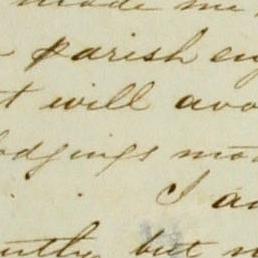 made me
parish
t will avo
lodgings mo
I a
but